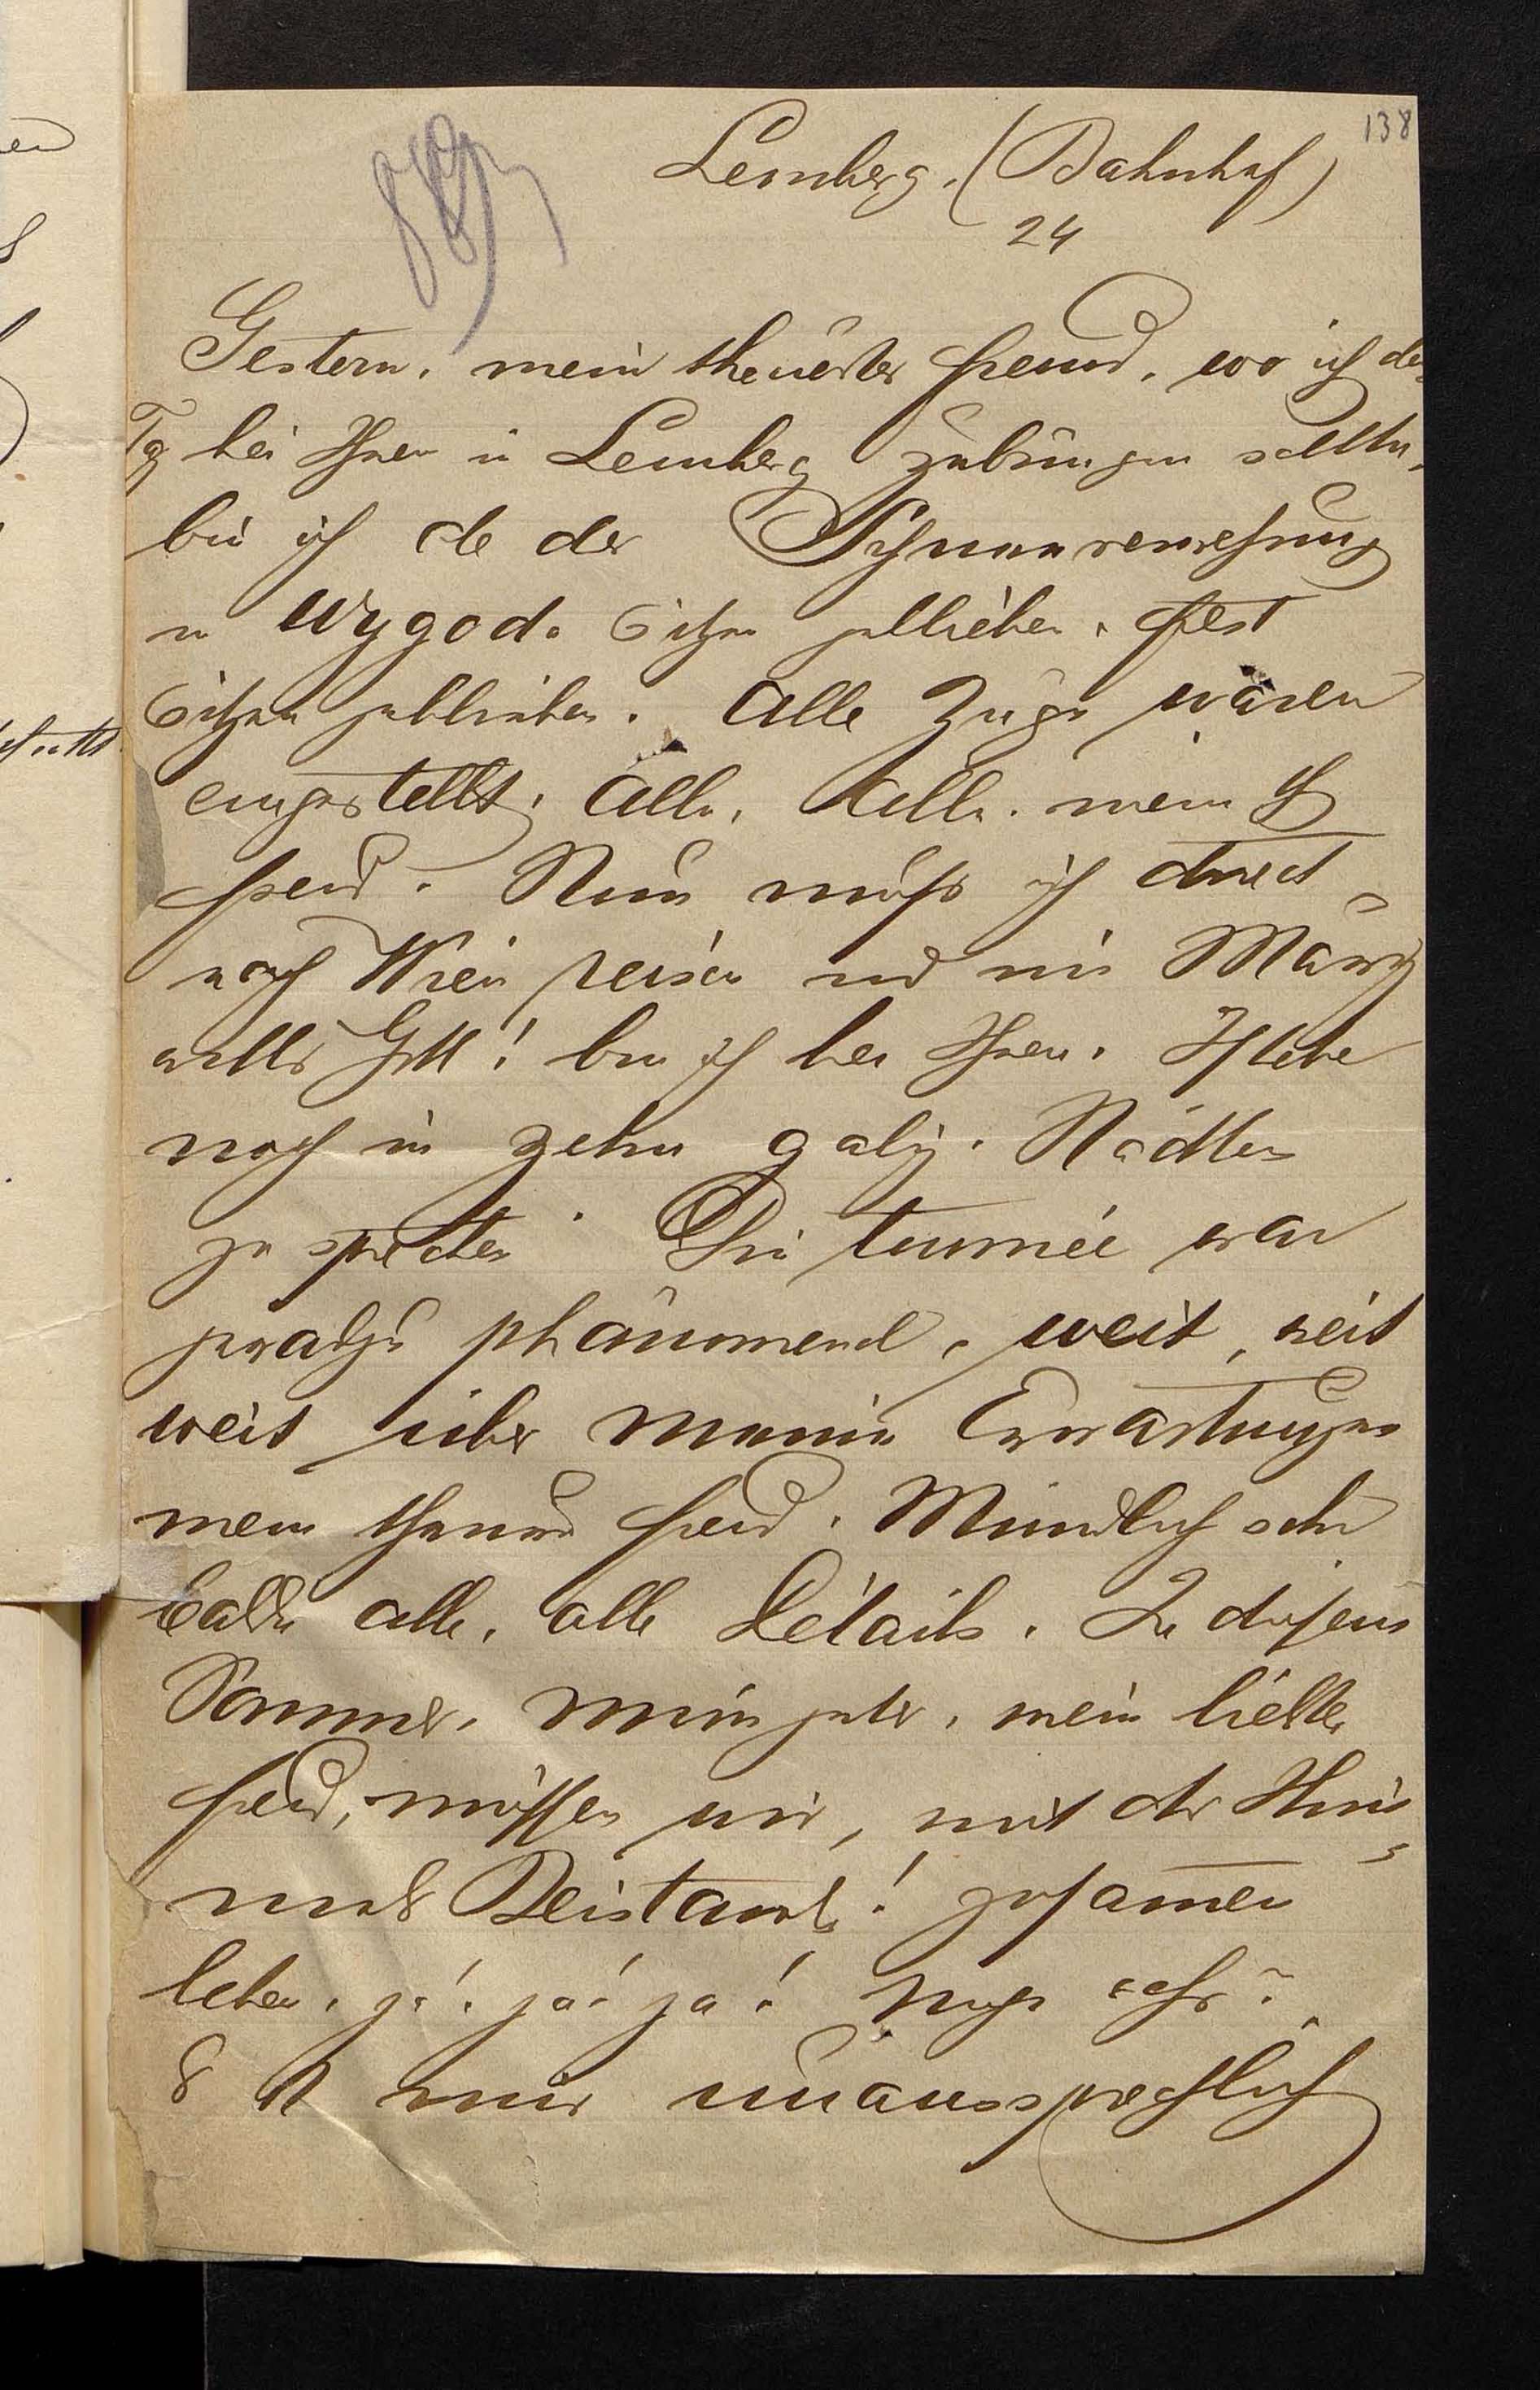 138
Lemberg. (Bahnhof)
24
Gestern, mein theuerster Freund, wo ich den
Tg bei Ihnen in Lemberg zubringen sollte,
bin ich ob der Schneeverwehung
in Wygoda sitzen geblieben, fest
sitzen geblieben. Alle Züge waren
eingestellt, alle, alle, mein
Freund. Nun muß ich direct
nach Wien reisen und im März
wills Gott! bin ich bei Ihnen. Ich habe
noch in zehn galiz. Städten
zu sprechen. Die tournée war
geradezu phänomenal, weit, weit
weit über meine Erwartungen
mein theurer Freund. Mündlich sehr
balde alle, alle Détails. In diesem
Sommer, mein guter, mein liebster
Freund, müssen wir, mit des Him-
mels Beistand! zusammen
leben, ja! ja! ja!
ist mir unaussprechlich